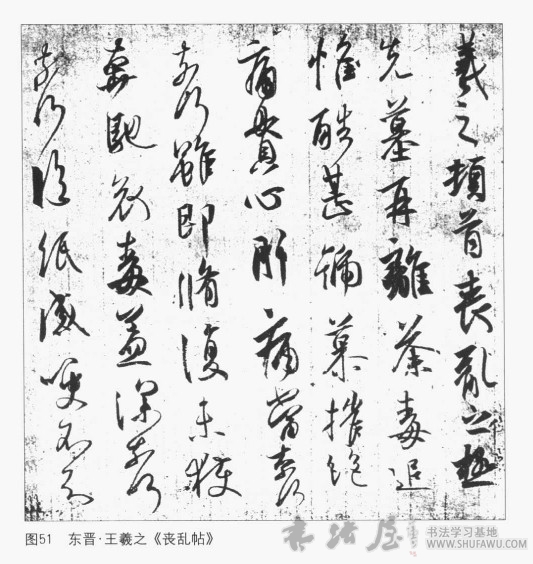 羲之頓首喪亂之極
先墓再離荼毒追
惟酷甚號慕摧絕
痛貫心肝痛當奈何
奈何雖即脩復未獲
奔馳哀毒益深奈何
奈何臨紙感哽不知
图51 东晋·王羲之《丧乱帖》
书法屋
书法学习基地
WWW.SHUFAWU.COM